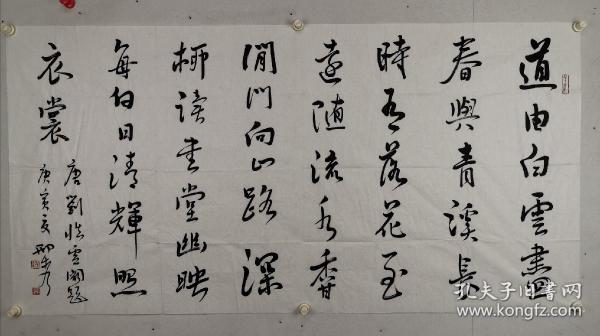 道由白雲盡
春與青溪長
時有落花至
遠隨流水香
閒門向山路深
柳讀書堂幽映
每白日清輝照
衣裳
唐劉慎虛闕題
庚寅夏
孔夫子旧书网
www.kongfz.com